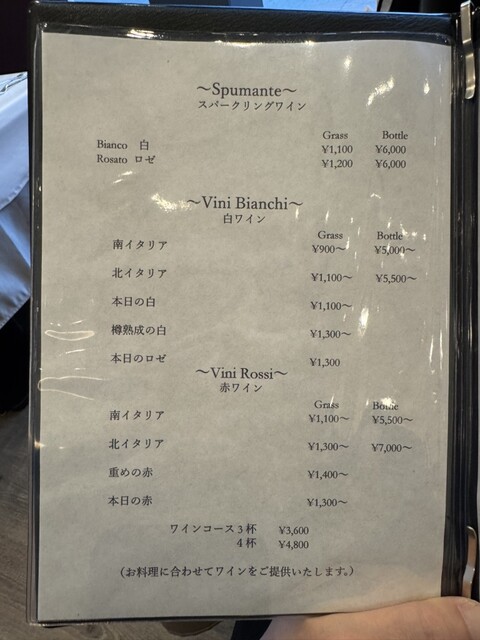 ～Spumante～
スパークリングワイン
Grass Bottle
Bianco 白 ¥1,100 ¥6,000
Rosato ロゼ ¥1,200 ¥6,000
～Vini Bianchi～
白ワイン
Grass Bottle
南イタリア ¥900～ ¥5,000～
北イタリア ¥1,100～ ¥5,500～
本日の白 ¥1,100～
樽熟成の白 ¥1,300～
本日のロゼ ¥1,300
～Vini Rossi～
赤ワイン
Grass Bottle
南イタリア ¥1,100～ ¥5,500～
北イタリア ¥1,300～ ¥7,000～
重めの赤 ¥1,400～
本日の赤 ¥1,300～
ワインコース 3 杯 ¥3,600
4 杯 ¥4,800
（お料理に合わせてワインをご提供いたします。）